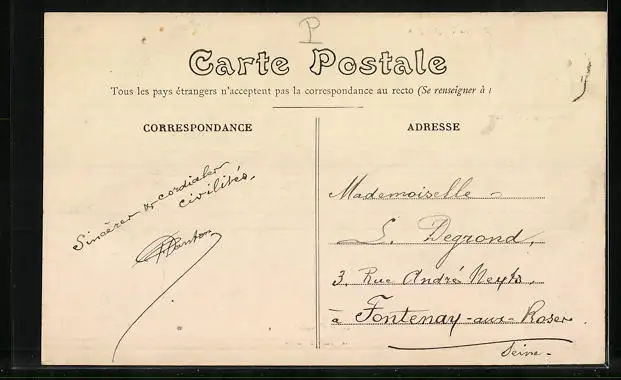 P
Carte Postale
Tous les pays étrangers n'acceptent pas la correspondance au recto (Se renseigner à
CORRESPONDANCE
Sincères & cordiales
civilités.
ADRESSE
Mademoiselle
L. Degrond,
3, Rue André
à Fontenay-aux-Roses
Seine.